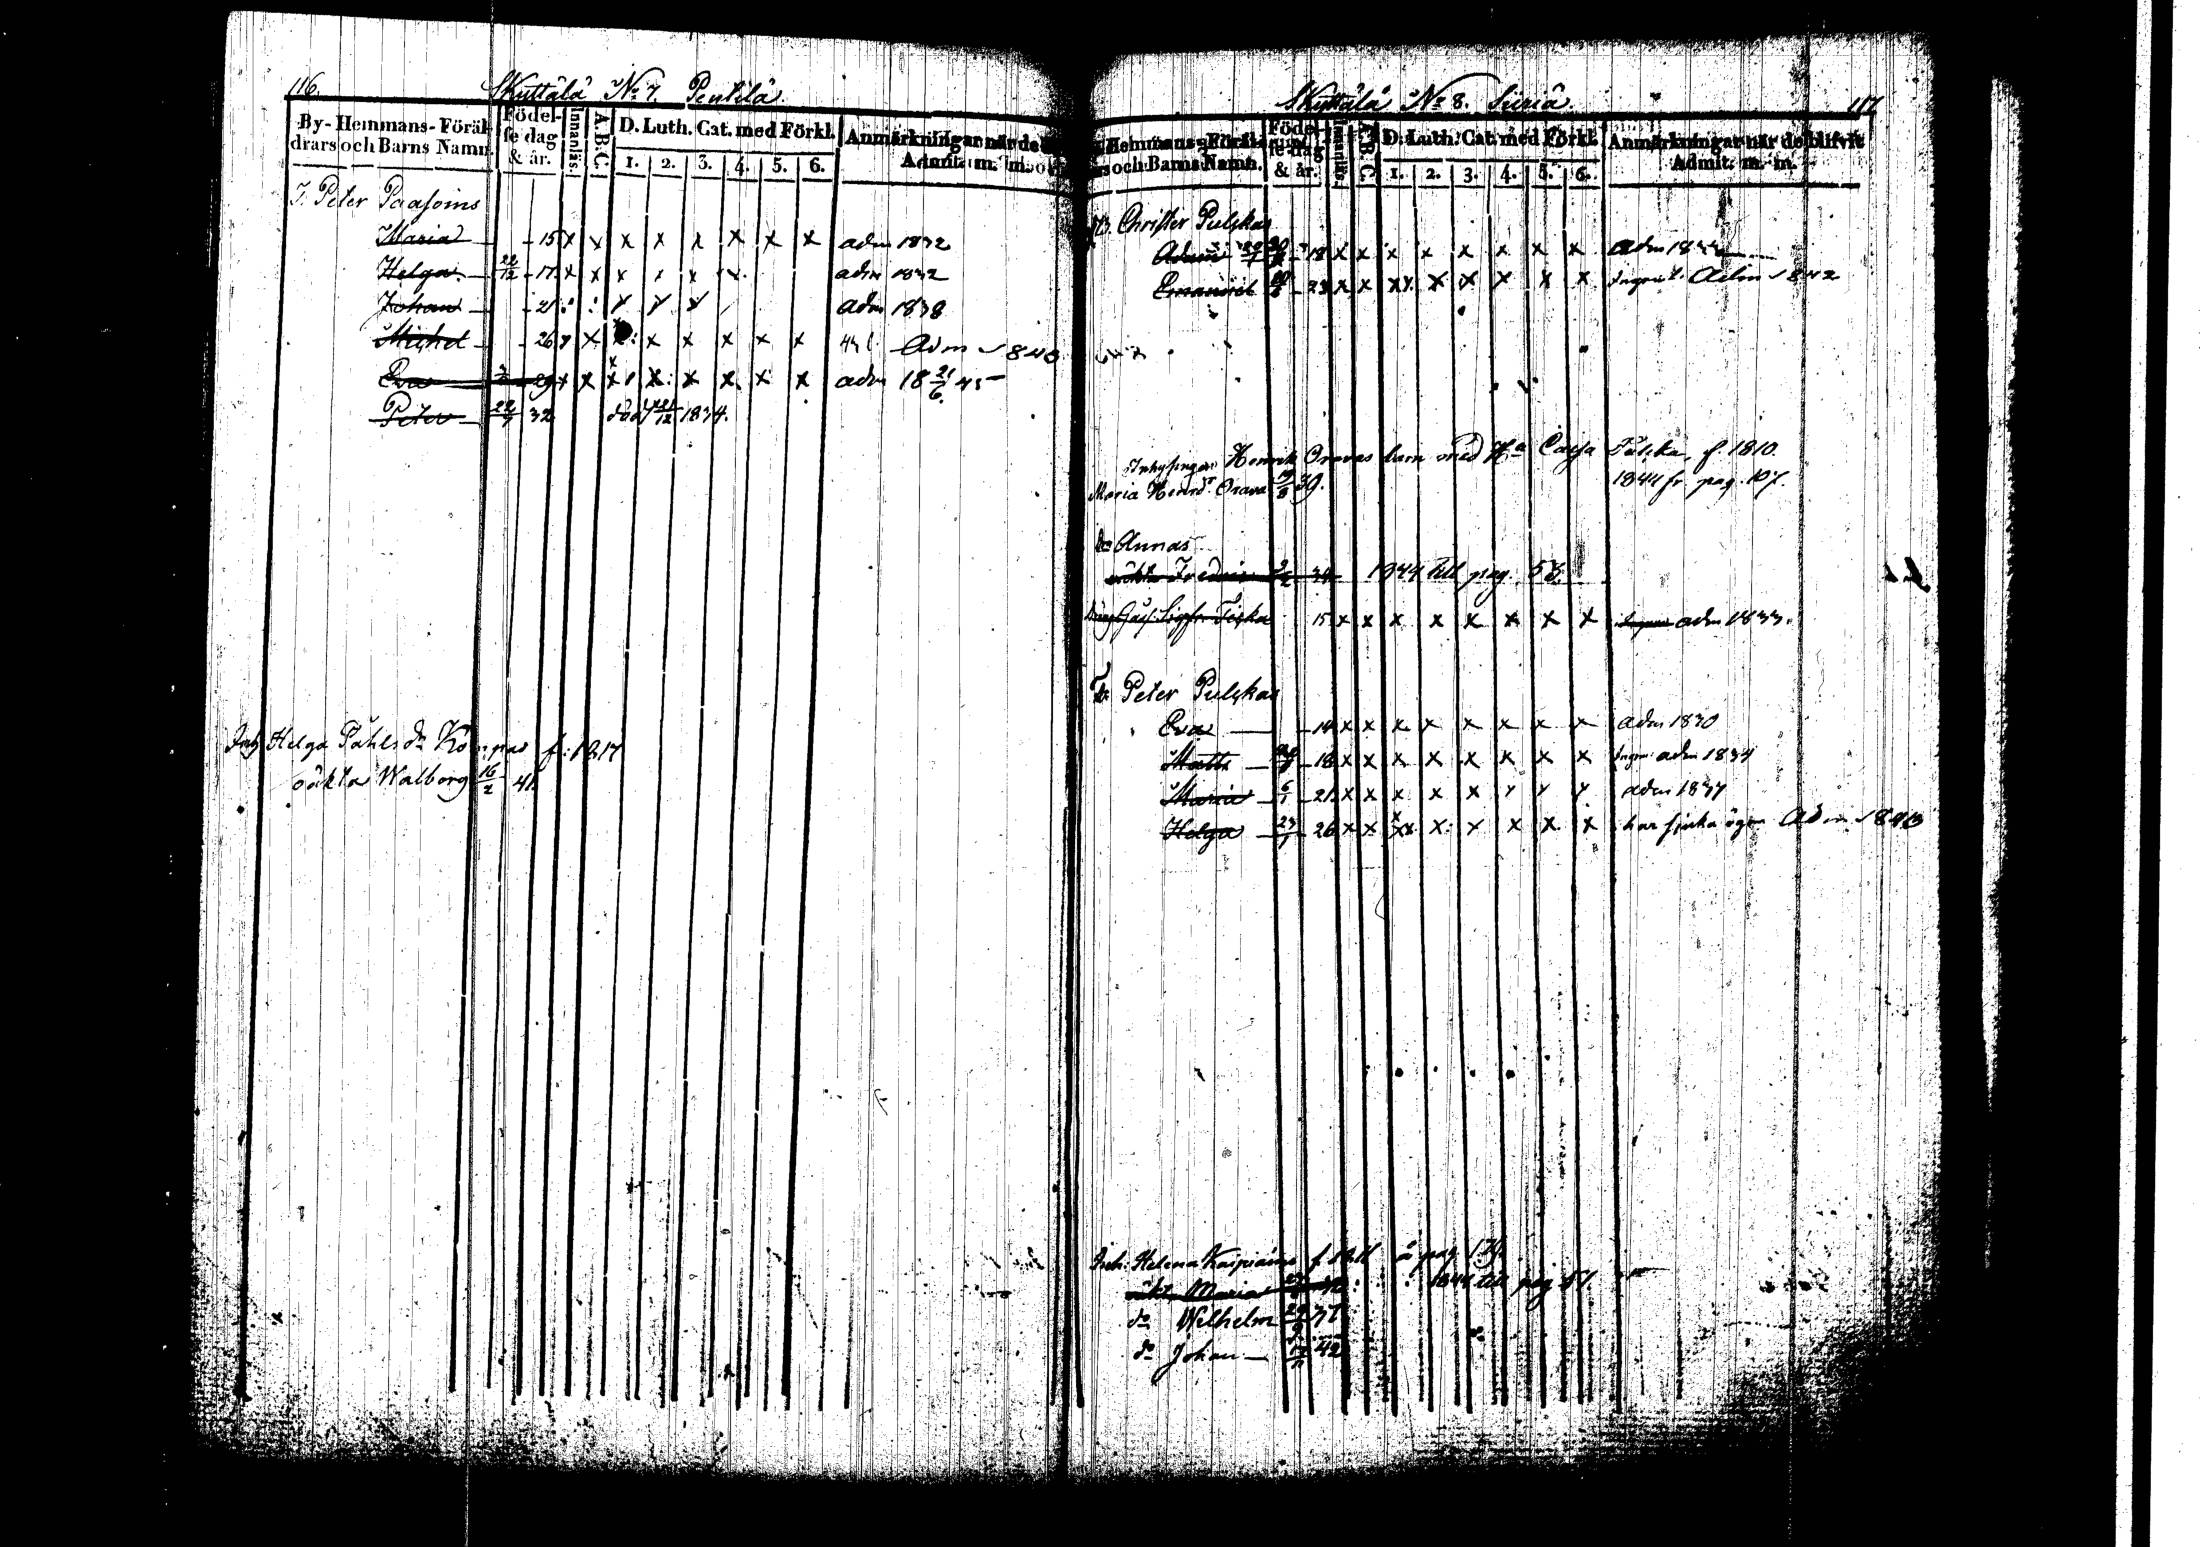 116.
Skyttälä No 7. Pentilä.
By- Hemmans- Föräl-
drars och Barns Namn.
Födel-
se dag
& år.
Innanläs.
A. B. C.
D. Luth. Cat. med Förkl.
1. 2. 3. 4. 5. 6.
Anmärkningar när de
Admit. m. m.
Peter Paasoins
Maria - 15 x x x x x x x x adm 1832
Helga 22/12 - 17 x x x x x x adm 1832
Johan - 21 adm 1838
Michel - 26 x x x x x x x Adm 1843
Eva 29 x x x x x x x x adm 18 21/6 45
Peter 22/9 32 död 1834.
Helga Påhls dr f: 1817
oäkta Walborg 16/2 41.
117
Skyttälä No 8. Suria.
Hemmans- Föräl-
och Barns Namn.
Födel-
se dag
& år.
Innanläs.
A. B. C.
D. Luth. Cat. med Förkl.
1. 2. 3. 4. 5. 6.
Anmärkningar när de blifvit
Admit. m. m.
Christer Pulskas
Adam - 18 x x x x x x x x adm 1833
Emanuel - 23 x x x x x x x x Adm 1842
Inhysingen Henrik Oravas barn med Hu Caisa Pulska, f 1810.
Maria Henrdr Orava 39. 1844 fr pag. 107.
do Annas
oäkta Fredric 34 1844 till pag. 53.
Sigfr Tiska 15 x x x x x x x x adm 1833.
Peter Pulskas
Eva - 14 x x x x x x x x adm 1830
Matts - 18 x x x x x x x x adm 1834
Maria 6/1 - 21 x x x x x x x x adm 1837
Helga 23/1 - 26 x x x x x x x x har sjuka ögon Adm 1843
Inh: Helena Kaipiains f. 1811 å pag
oäkta Maria 1844 till pag 57.
do Wilhelm 29/9 37
do Johan 17/11 42